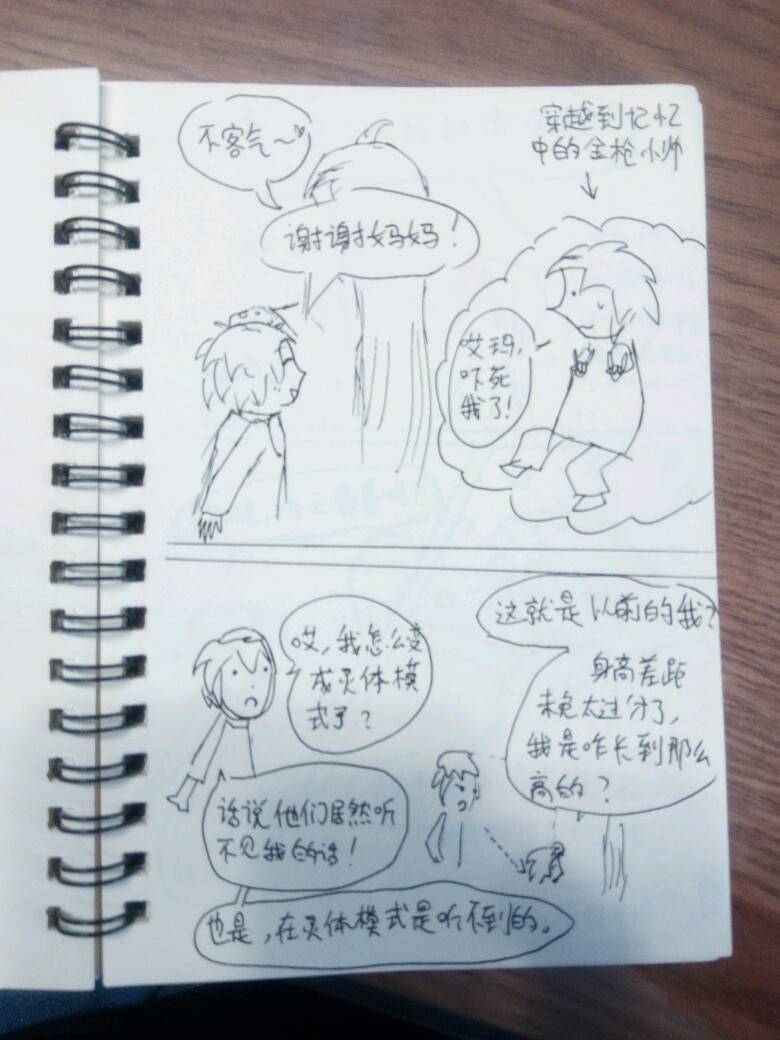 不客气～♥
谢谢妈妈！
穿越到记忆
中的金枪小帅
哎玛，
吓死
我了！
哎，我怎么变
成灵体模
式了？
话说他们居然听
不见我的话！
也是，在灵体模式是听不到的。
这就是以前的我？
身高差距
未免太过分了，
我是咋长到那么
高的？